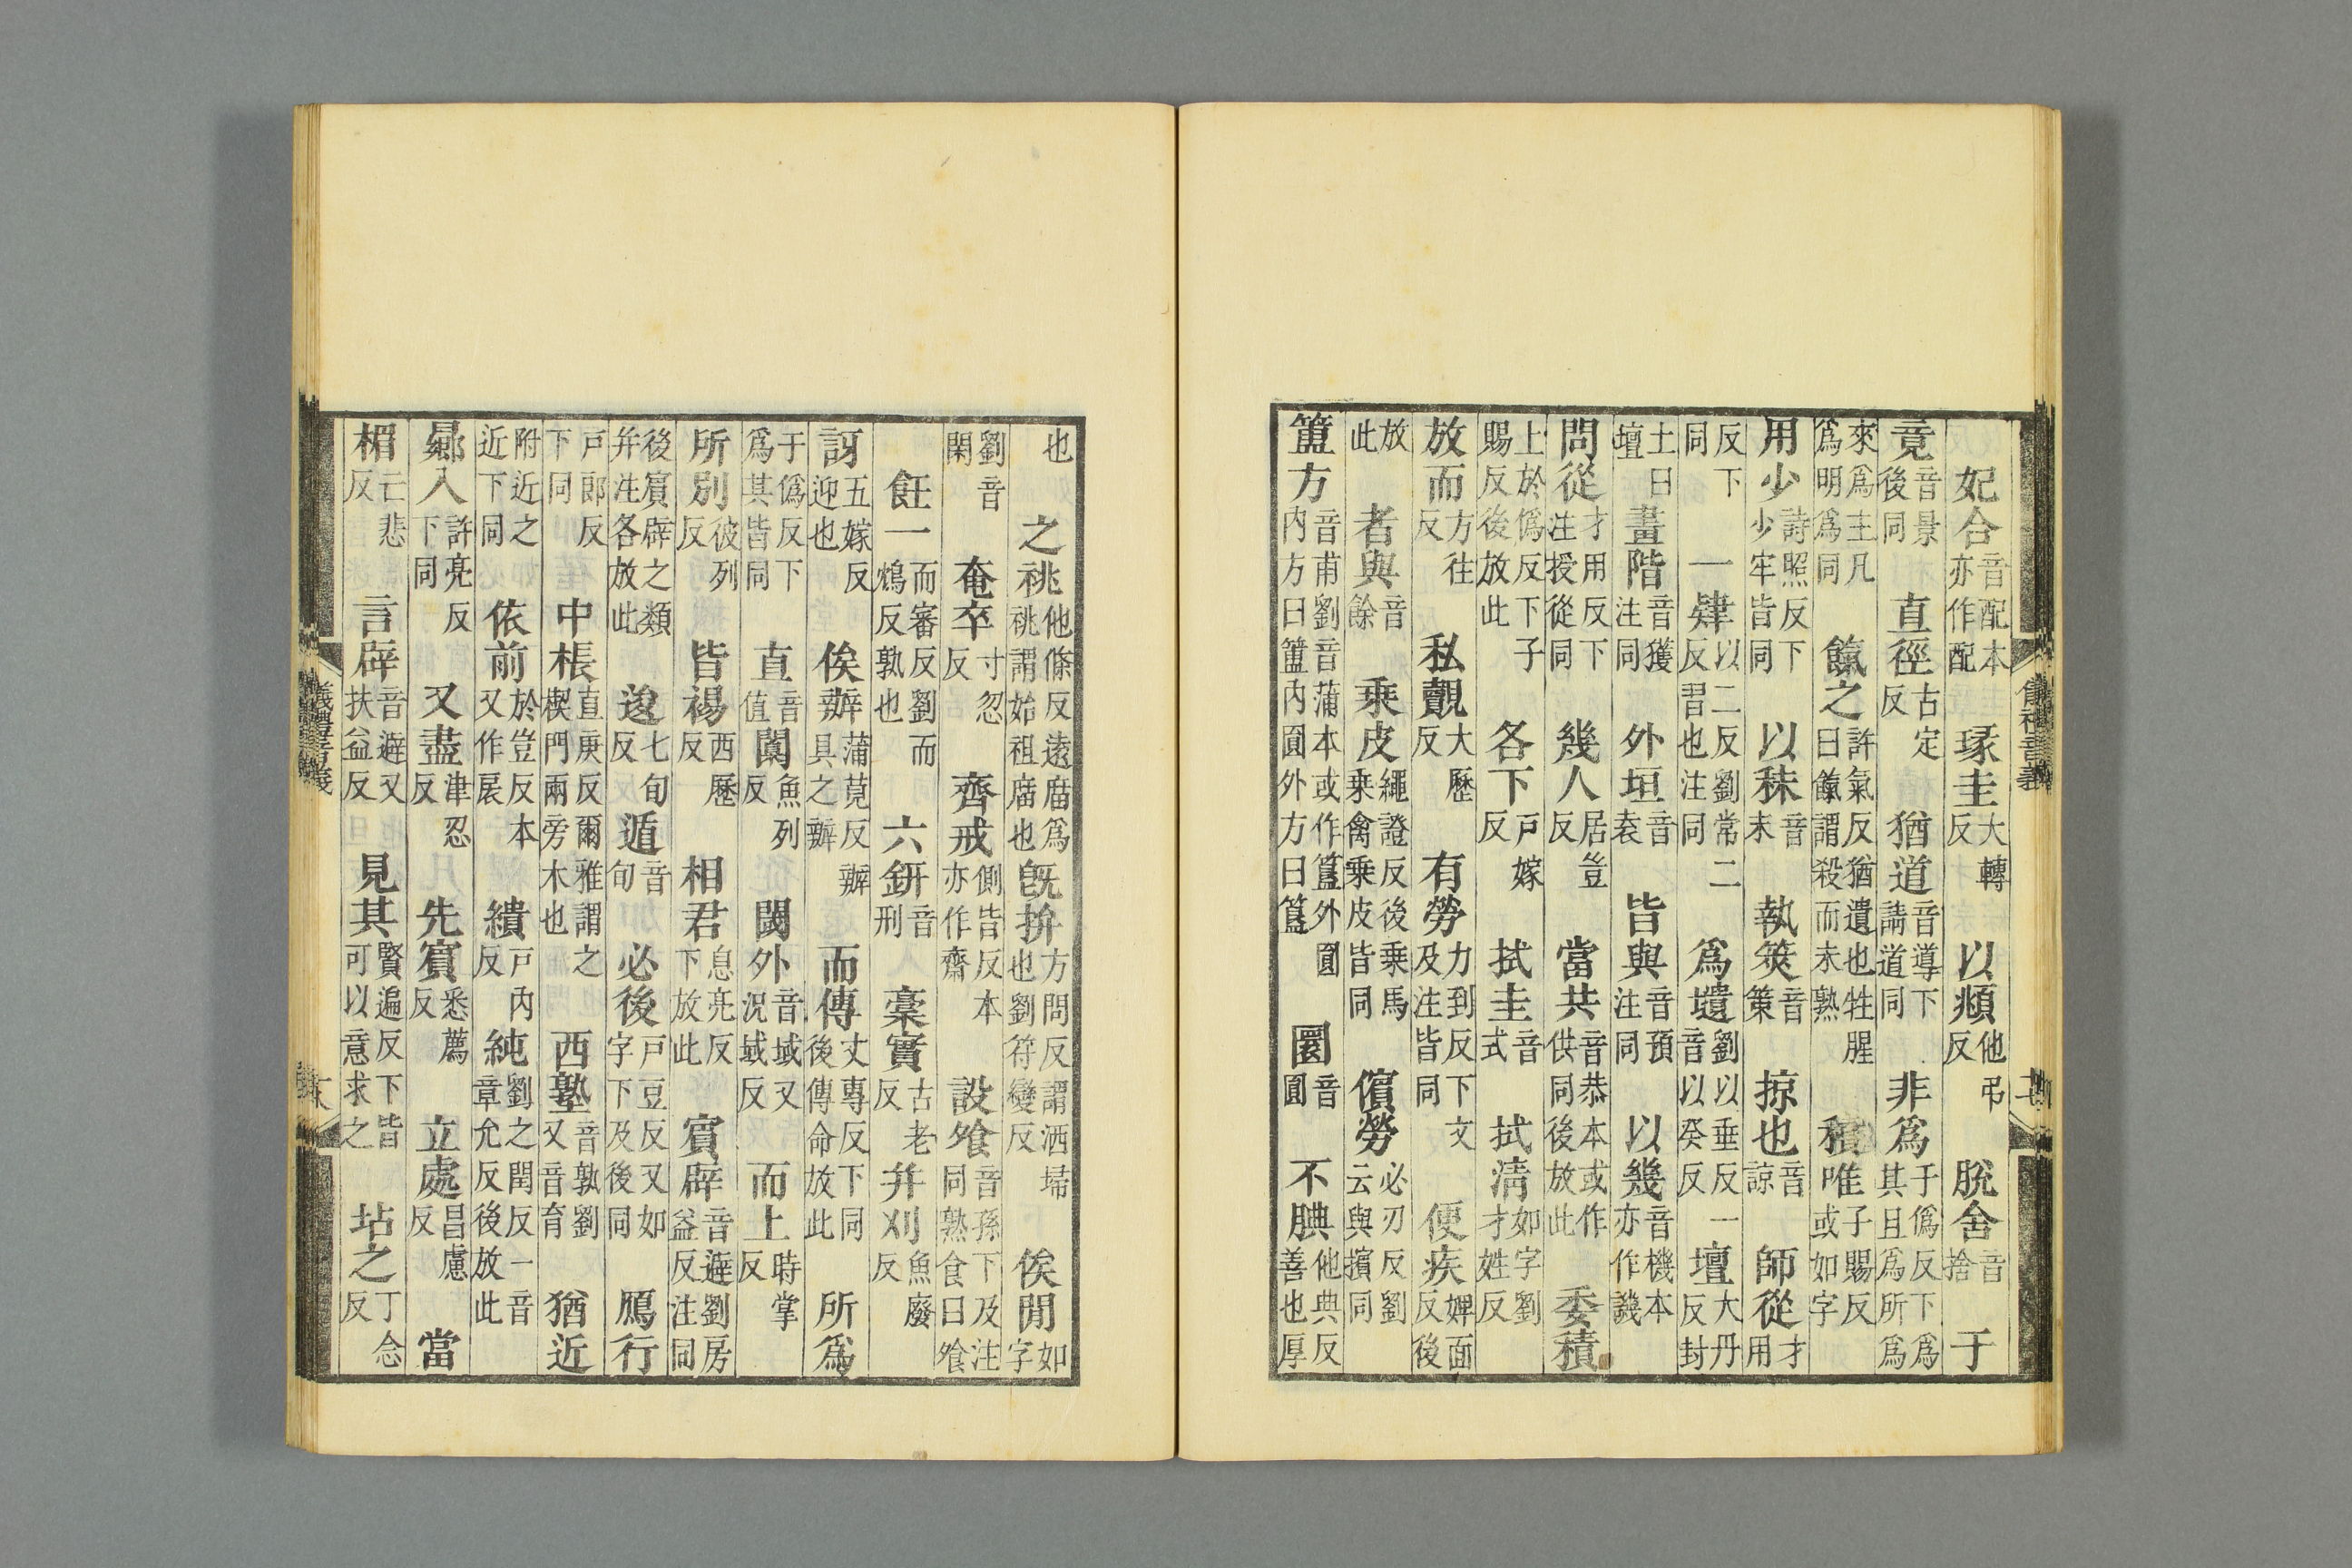 妃合音配本亦作配 瑑圭大轉反 以頫他弔反 脫舍音捨 于
竟音景後同 直徑古定反 猶道音導下請道同 非爲于僞反下爲其且爲所爲
來爲主凡爲明爲同 餼之許氣反猶遺也牲腥曰餼謂殺而未熟 積唯子賜反或如字
用少詩照反下少牢皆同 以秣音末 執筴音策 掠也音諒 師從才用
反下同 一肄以二反劉常二反習也注同 爲壝劉以垂反一音以癸反 壇大丹反封
土曰壇 畫階音獲注同 外垣音袁 皆與音預注同 以幾音機本亦作譏
問從才用反下注授從同 幾人居豈反 當共音恭本或作供同後放此 委積
上於僞反下子賜反後放此 各下戶嫁反 拭圭音式 拭清如字劉才姓反
放而方往反 私覿大歷反 有勞力到反下文及注皆同 便疾婢面反後
放此 者與音餘 乘皮繩證反後乘馬乘禽乘皮皆同 儐勞必刃反劉云與擯同
簠方音甫劉音蒲本或作簋外圓内方曰簠内圓外方曰簋 圜音圓 不腆他典反善也厚
儀禮音義
也 之祧他條反遠廟爲祧謂始祖廟也 旣拚方問反謂洒埽也劉符變反 俟閒如字
劉音閑 奄卒寸忽反 齊戒側皆反本亦作齋 設飧音孫下及注同熟食曰飧
飪一而審反劉而鴆反孰也 六鉶音刑 稾實古老反 幷刈魚廢反
訝五嫁反迎也 俟辦蒲莧反辦具之辦 而傳丈專反下同後傳命放此 所爲
于僞反下爲其皆同 直音值 闑魚列反 閾外音域又況域反 而上時掌反
所別彼列反 皆裼西歷反 相君息亮反下放此 賓辟音避劉房益反注同
後賓辟之類幷注各放此 逡七旬反 遁音旬 必後戶豆反又如字下及後同 鴈行
戶郎反下同 中棖直庚反爾雅謂之楔門兩旁木也 西塾音孰劉又音育 猶近
附近之近下同 依前於豈反本又作扆 繢戶内反 純劉之閏反一音章允反後放此
曏入許亮反下同 又盡津忍反 先賓悉薦反 立處昌慮反 當
楣亡悲反 言辟音避又扶益反 見其賢遍反下皆可以意求之 坫之丁念反
儀禮音義